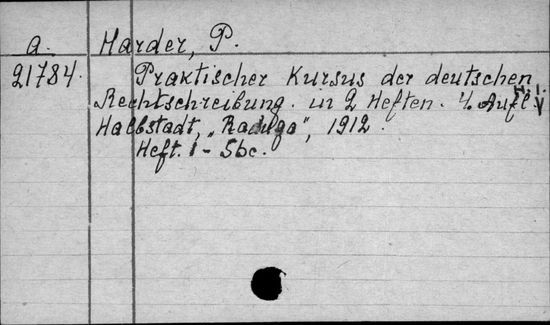 a. Harder, P.
21784. Praktischer Kursus der deutschen
Rechtschreibung. in 2 Heften. 4. Aufl.
Halbstadt, „Raduga", 1912.
Heft. 1 - 56c.